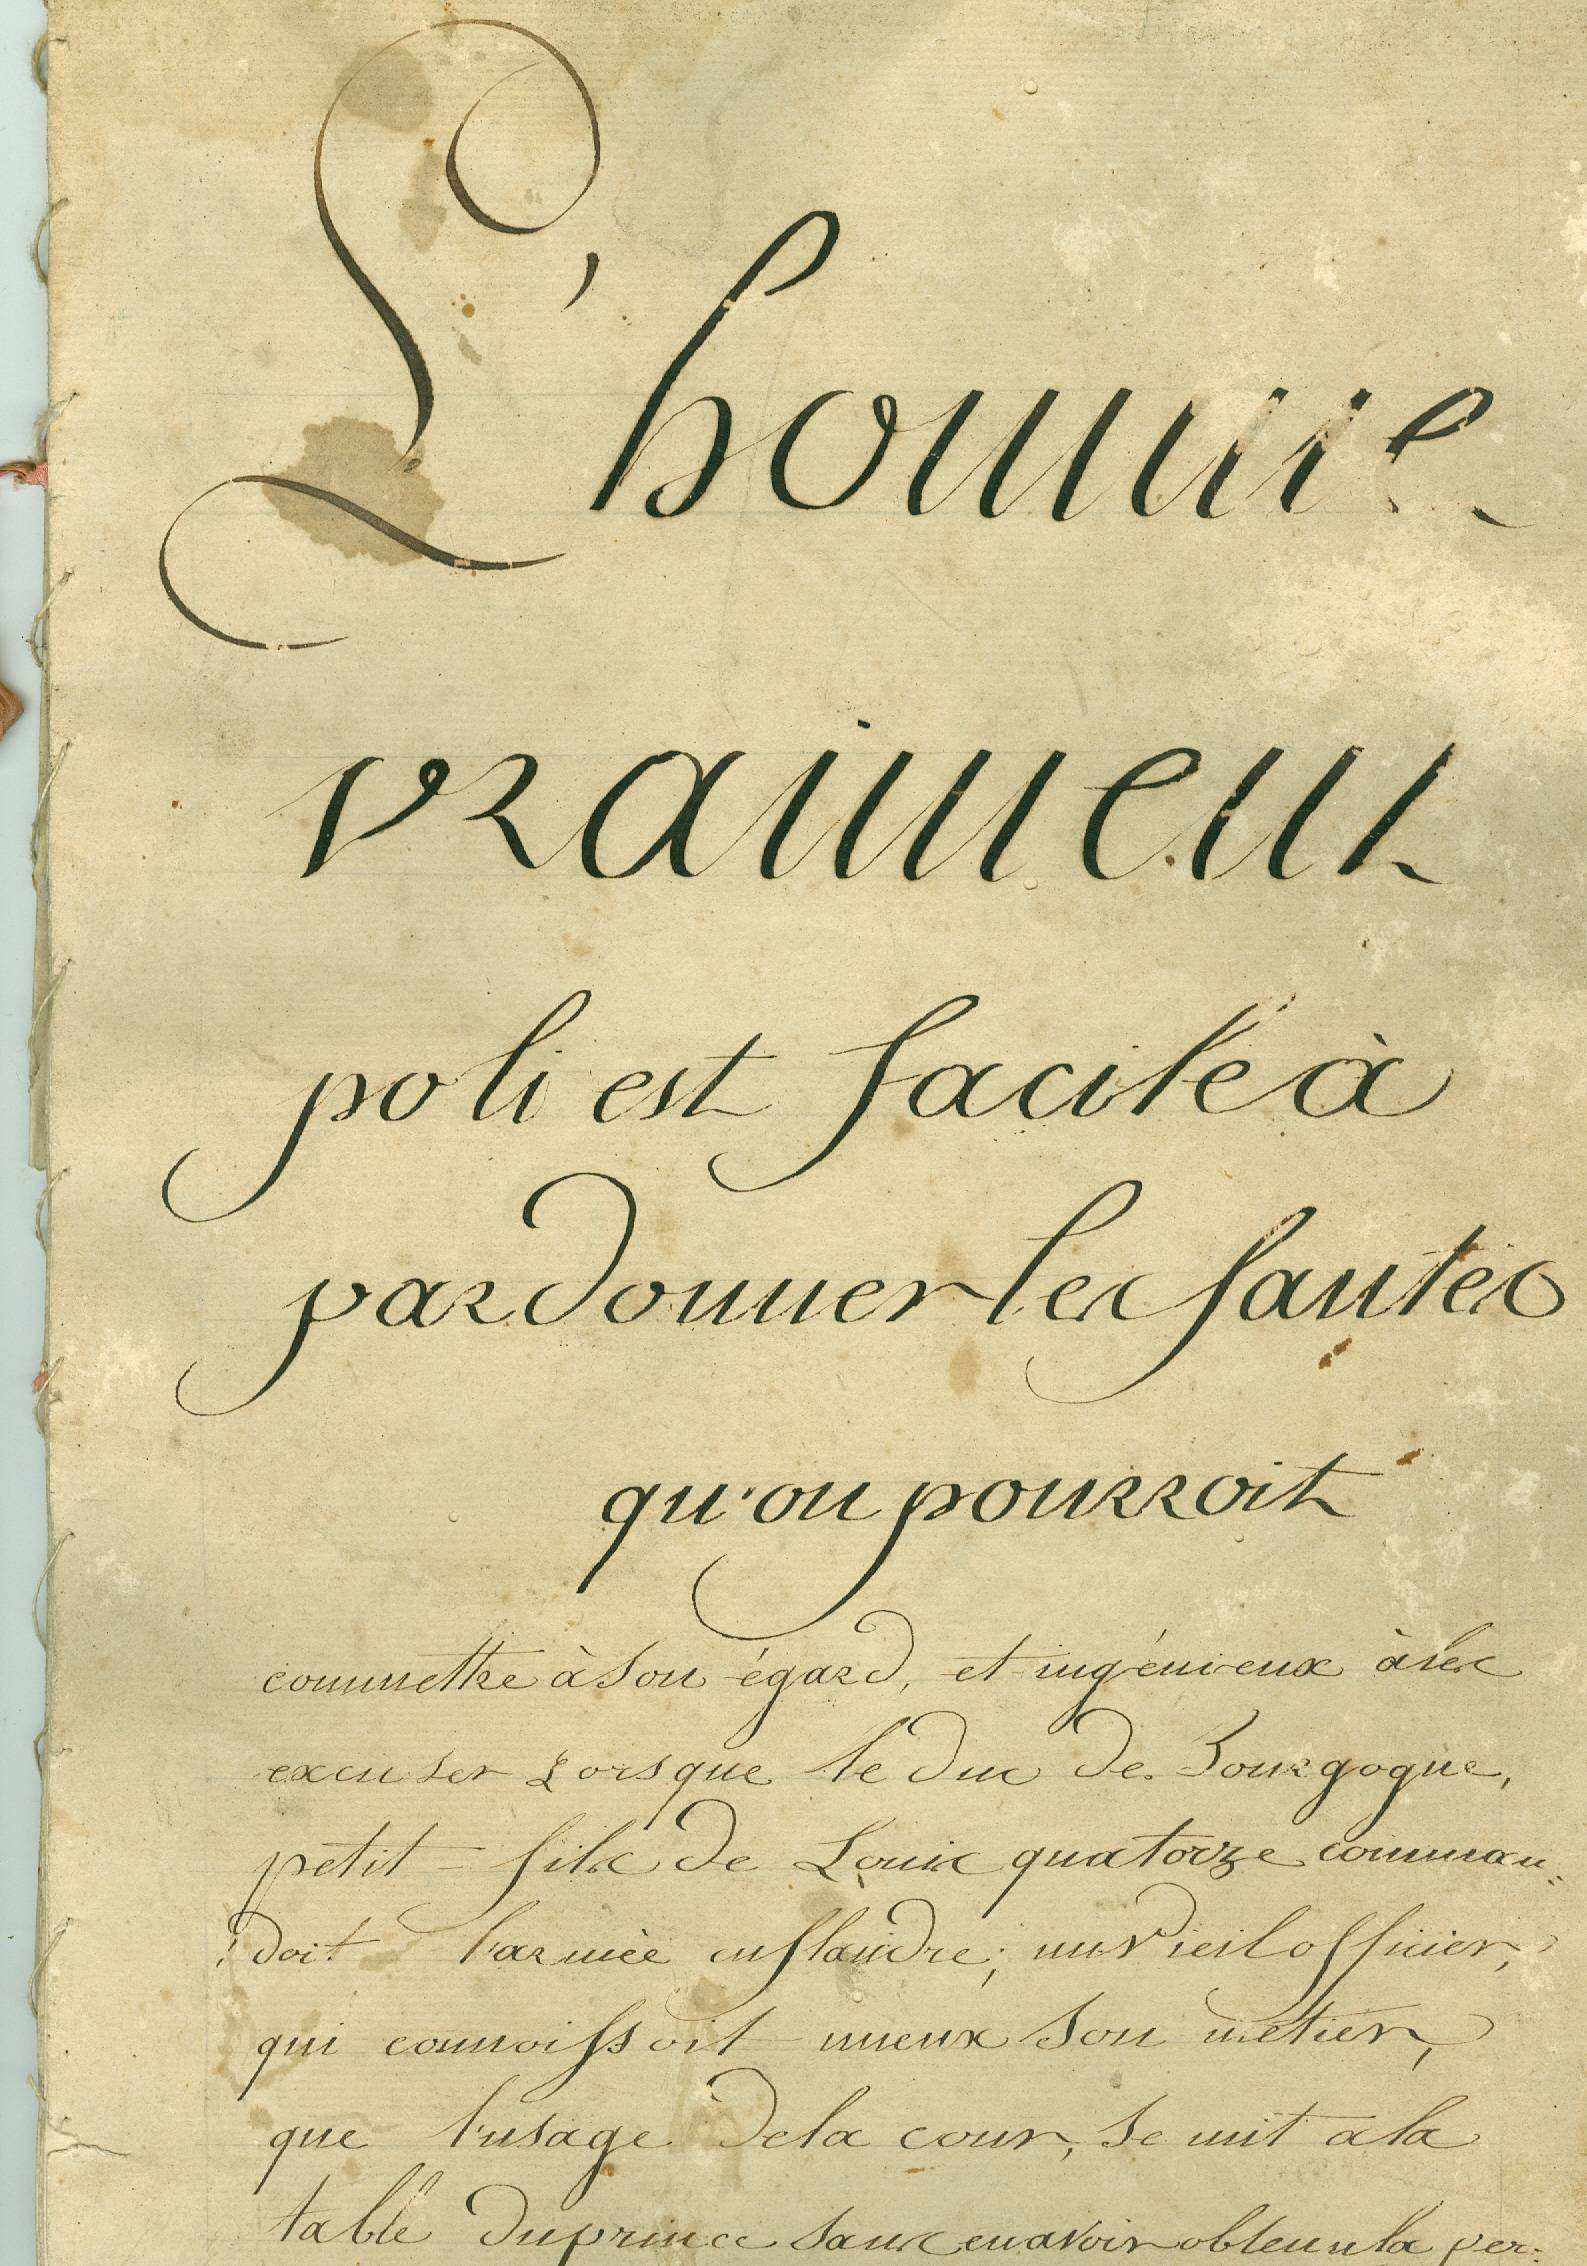 L'homme
vraiment
poli est facile à
pardonner les fautes
qu'on pourroit
commettre à son égard, et ingénieux à les
excuser Lorsque le duc de Bourgogne,
petit-fils de Louis quatorze comman=
doit l'armée en flandre; un vieil officier,
qui connoissoit mieux son métier,
que l'usage de la cour, se mit a la
table du prince sans en avoir obtenu la per=